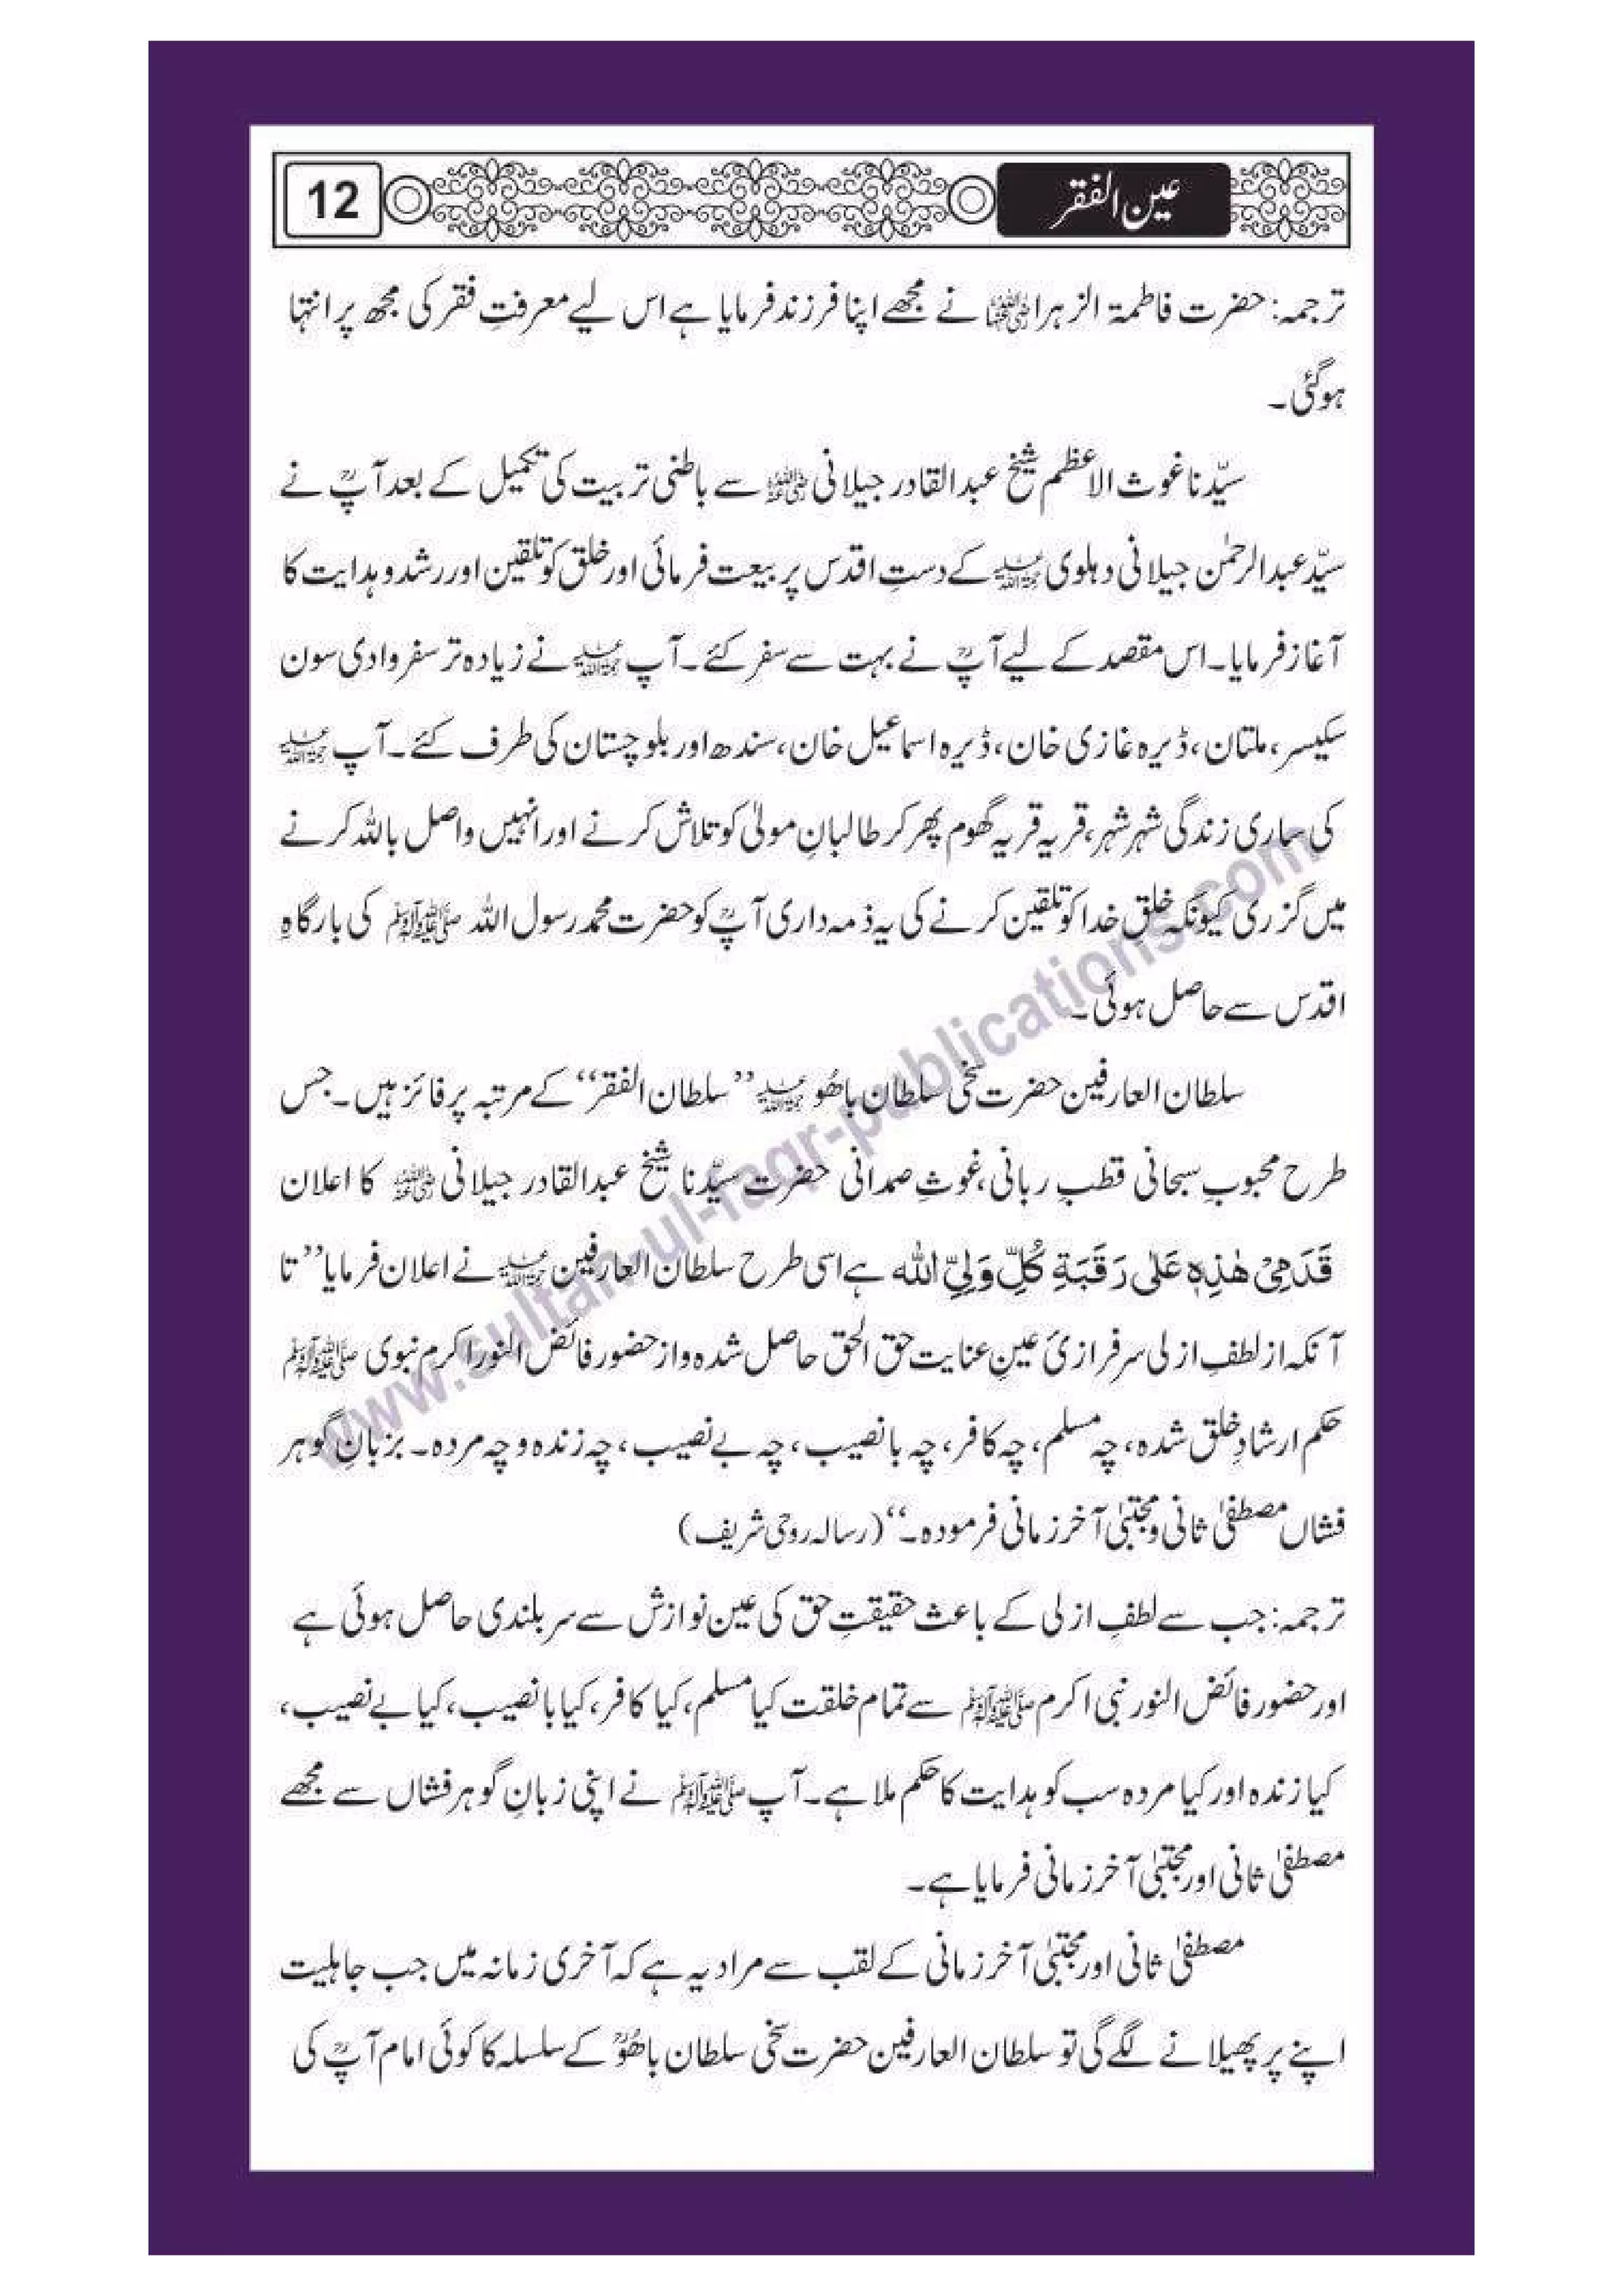 عین الفقر
12
ترجمہ: حضرت فاطمۃ الزہرا رضی اللہ عنہا نے مجھے اپنا فرزند فرمایا ہے اس لیے معرفتِ فقر کی مجھ پر انتہا
ہوگئی۔
سیّدنا غوث الاعظم شیخ عبدالقادر جیلانی رضی اللہ عنہ سے باطنی تربیت کی تکمیل کے بعد آپؒ نے
سیّد عبدالرحمٰن جیلانی دہلوی رحمۃ اللہ علیہ کے دستِ اقدس پر بیعت فرمائی اور خلق کو تلقین اور رشد و ہدایت کا
آغاز فرمایا۔ اس مقصد کے لیے آپؒ نے بہت سے سفر کئے۔ آپ رحمۃ اللہ علیہ نے زیادہ تر سفر وادی سون
سکیسر، ملتان، ڈیرہ غازی خان، ڈیرہ اسماعیل خان، سندھ اور بلوچستان کی طرف کئے۔ آپ رحمۃ اللہ علیہ
کی ساری زندگی شہر شہر، قریہ قریہ گھوم پھر کر طالبانِ مولیٰ کو تلاش کرنے اور انہیں واصل باللہ کرنے
میں گزری کیونکہ خلقِ خدا کو تلقین کرنے کی یہ ذمہ داری آپؒ کو حضرت محمد رسول اللہ ﷺ کی بارگاہِ
اقدس سے حاصل ہوئی۔
سلطان العارفین حضرت سخی سلطان باھُو رحمۃ اللہ علیہ ’’سلطان الفقر‘‘ کے مرتبہ پر فائز ہیں۔ جس
طرح محبوبِ سبحانی قطبِ ربانی، غوثِ صمدانی حضرت سیّدنا شیخ عبدالقادر جیلانی رضی اللہ عنہ کا اعلان
قَدَمِیْ ھٰذِہٖ عَلٰی رَقَبَةِ کُلِّ وَلِیِّ اللہ ہے اسی طرح سلطان العارفین رحمۃ اللہ علیہ نے اعلان فرمایا ’’تا
آنکہ از لطفِ ازلی سرفرازئ عینِ عنایت حق الحق حاصل شدہ و از حضور فائض النور اکرم نبوی ﷺ
حکم ارشادِ خلق شدہ، چہ مسلم، چہ کافر، چہ بانصیب، چہ بے نصیب، چہ زندہ و چہ مردہ۔ بزبانِ گوہر
فشاں مصطفیٰ ثانی و مجتبیٰ آخر زمانی فرمودہ۔‘‘ (رسالہ روحی شریف)
ترجمہ: جب سے لطفِ ازلی کے باعث حقیقتِ حق کی عین نوازش سے سربلندی حاصل ہوئی ہے
اور حضور فائض النور نبی اکرم ﷺ سے تمام خلقت کیا مسلم، کیا کافر، کیا بانصیب، کیا بے نصیب،
کیا زندہ اور کیا مردہ سب کو ہدایت کا حکم ملا ہے۔ آپ ﷺ نے اپنی زبانِ گوہر فشاں سے مجھے
مصطفیٰ ثانی اور مجتبیٰ آخر زمانی فرمایا ہے۔
مصطفیٰ ثانی اور مجتبیٰ آخر زمانی کے لقب سے مراد یہ ہے کہ آخری زمانہ میں جب جاہلیت
اپنے پر پھیلانے لگے گی تو سلطان العارفین حضرت سخی سلطان باھُوؒ کے سلسلہ کا کوئی امام آپؒ کی
www.sultan-ul-faqr-publications.com